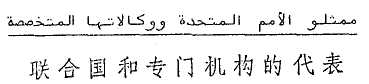 ممثلو الأمم المتحدة ووكالاتها المتخصصة
联合国和专门机构的代表